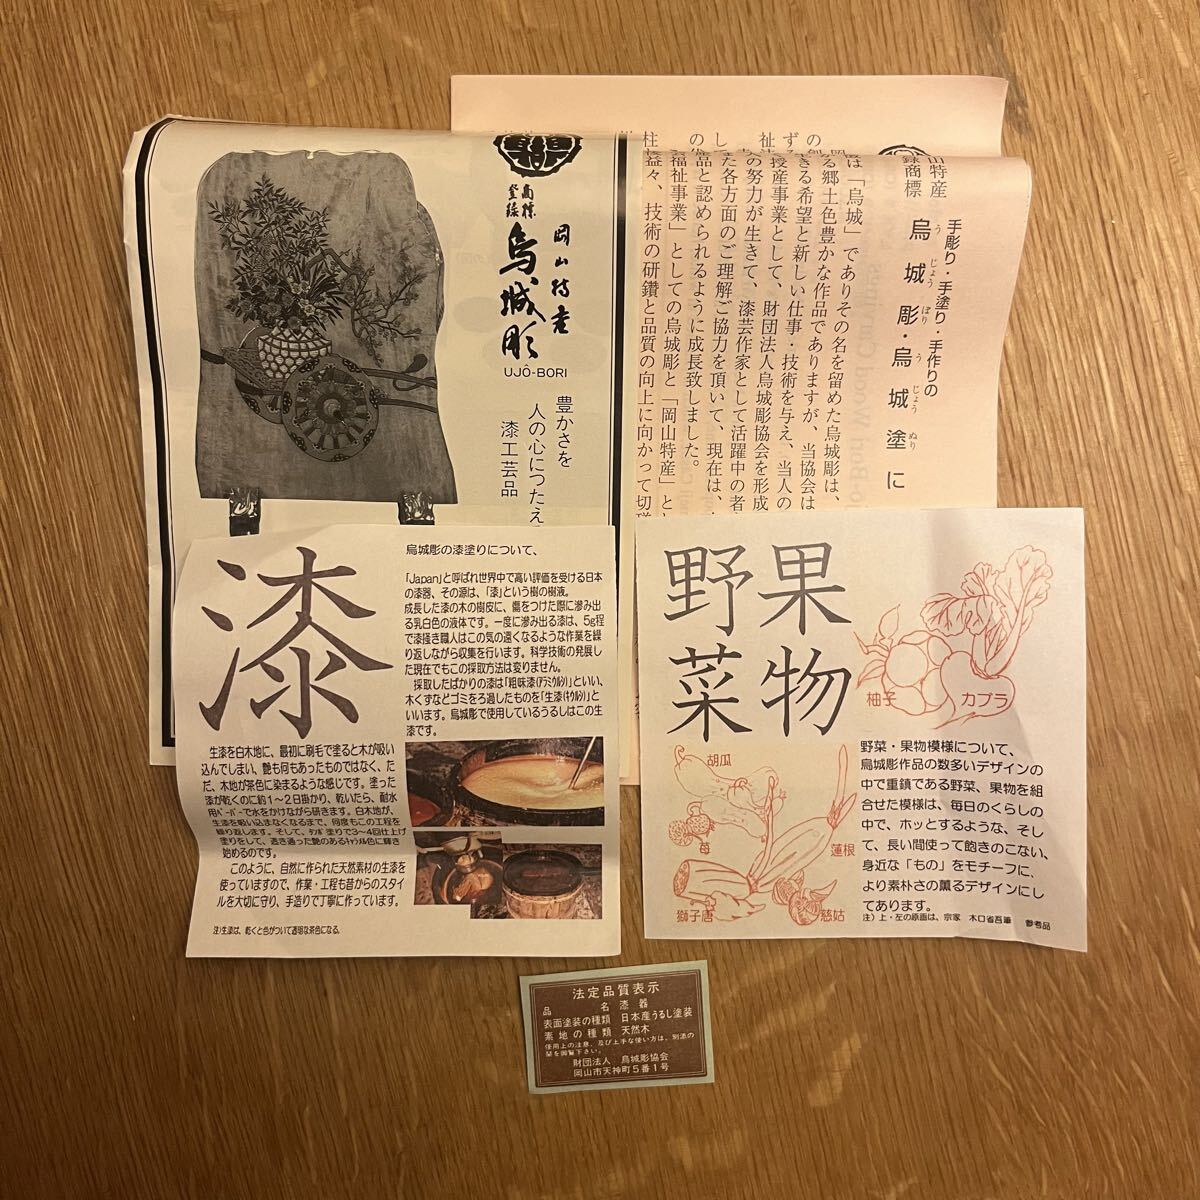 登録
商標
岡山特産
烏城彫
UJÔ-BORI
豊かさを
人の心につたえ
漆工芸品
山特産
録商標
手彫り・手塗り・手作りの
烏城彫・烏城塗に
うじょうぼり うじょうぬり
は「烏城」でありその名を留めた烏城彫は、
る郷土色豊かな作品でありますが、当協会は
きる希望と新しい仕事・技術を与え、当人の
授産事業として、財団法人烏城彫協会を形成
の努力が生きて、漆芸作家として活躍中の者
た各方面のご理解ご協力を頂いて、現在は、
品と認められるように成長致しました。
福祉事業」としての烏城彫と「岡山特産」と
益々、技術の研鑽と品質の向上に向かって切磋
漆
烏城彫の漆塗りについて、
「Japan」と呼ばれ世界中で高い評価を受ける日本
の漆器、その源は、「漆」という樹の樹液。
成長した漆の木の樹皮に、傷をつけた際に滲み出
る乳白色の液体です。一度に滲み出る漆は、5g程
で漆掻き職人はこの気の遠くなるような作業を繰
り返しながら収集を行います。科学技術の発展し
た現在でもこの採取方法は変りません。
採取したばかりの漆は「粗味漆(ｱﾗﾐｳﾙｼ)」といい、
木くずなどゴミをろ過したものを「生漆(ｷｳﾙｼ)」と
いいます。烏城彫で使用しているうるしはこの生
漆です。
生漆を白木地に、最初に刷毛で塗ると木が吸い
込んでしまい、艶も何もあったものではなく、た
だ、木地が茶色に染まるような感じです。塗った
漆が乾くのに約1～2日掛かり、乾いたら、耐水
用ﾍﾟｰﾊﾟｰで水をかけながら研きます。白木地が、
生漆を吸い込まなくなるまで、何度もこの工程を
繰り返します。そして、ﾀﾝﾎﾟ塗りで3～4回仕上げ
塗りをして、透き通った艶のあるｷｬﾗﾒﾙ色に輝き
始めるのです。
このように、自然に作られた天然素材の生漆を
使っていますので、作業・工程も昔からのスタイ
ルを大切に守り、手造りで丁寧に作っています。
注)生漆は、乾くと色がついて透明な茶色になる。
野菜
果物
柚子
カブラ
胡瓜
苺
蓮根
獅子唐
慈姑
野菜・果物模様について、
烏城彫作品の数多いデザインの
中で重鎮である野菜、果物を組
合せた模様は、毎日のくらしの
中で、ホッとするような、そし
て、長い間使って飽きのこない、
身近な「もの」をモチーフに、
より素朴さの薫るデザインにし
てあります。
注）上・左の原画は、宗家 木口省吾筆 参考品
法定品質表示
品名 漆器
表面塗装の種類 日本産うるし塗装
素地の種類 天然木
使用上の注意、及び上手な使い方は、別添の
栞を御覧下さい。
財団法人 烏城彫協会
岡山市天神町5番1号